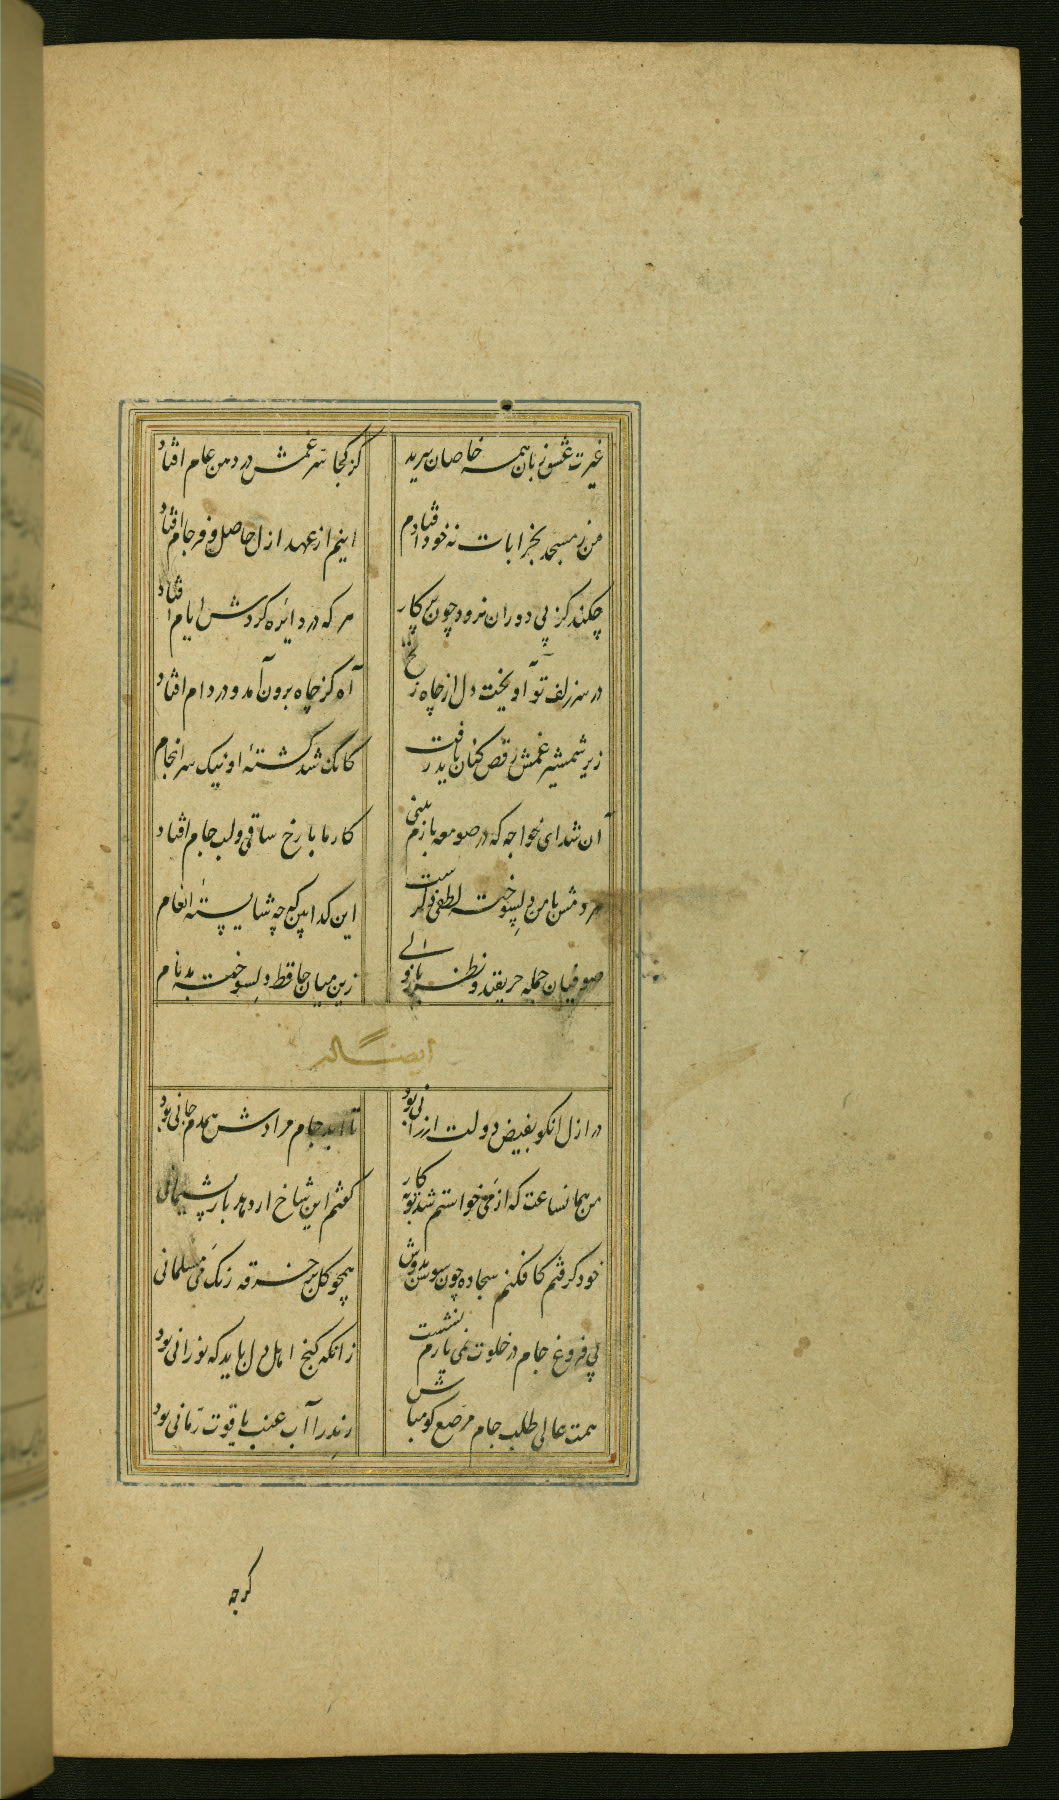 غیرت عشق زبان همه خاصان ببرید کز کجا سر غمش در دهن عام افتاد
من ز مسجد بخرابات نه خود افتادم اینم از عهد ازل حاصل فرجام افتاد
چکند کز پی دوران نرود چون پرکار هر که در دائره گردش ایام افتاد
در سر زلف تو آویخت دل از چاه زنخ آه کز چاه برون آمد و در دام افتاد
زیر شمشیر غمش رقص کنان باید رفت کانک شد کشتهٔ او نیک سرانجام
آن شد ای خواجه که در صومعه بازم بینی کار ما با رخ ساقی و لب جام افتاد
هر دمش با من دلسوخته لطفی دگرست این گدا بین که چه شایستهٔ انعام
صوفیان جمله حریفند و نظرباز ولی زین میان حافظ دلسوخته بدنام
ایضا له
در ازل انکو بفیض دولت ارزانی بود تا ابد جام مرادش همدم جانی بود
من همانساعت که از می خواستم شد توبه کار گفتم این شاخ ار دهد بار پشیمانی
خود گرفتم کافکنم سجاده چون سوسن بدوش همچو گل بر خرقه رنگ می مسلمانی
بی فروغ جام در خلوت نمی یارم نشست زانکه کنج اهل دل باید که نورانی بود
همت عالی طلب جام مرصع گو مباش رند را آب عنب یاقوت رمانی بود
گرچه